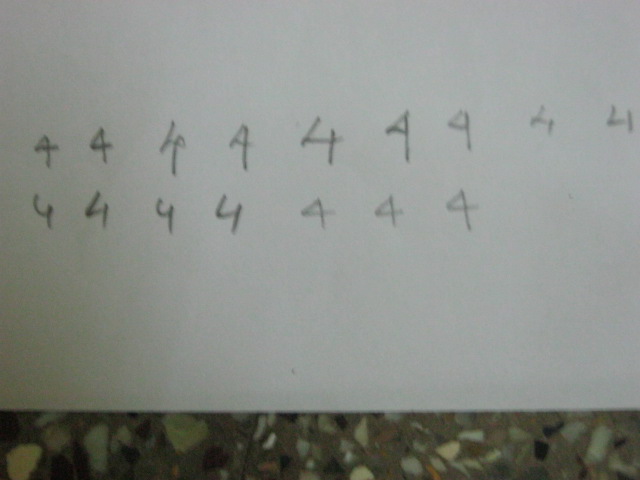 4 4 4 4 4 4 4 4 4
4 4 4 4 4 4 4